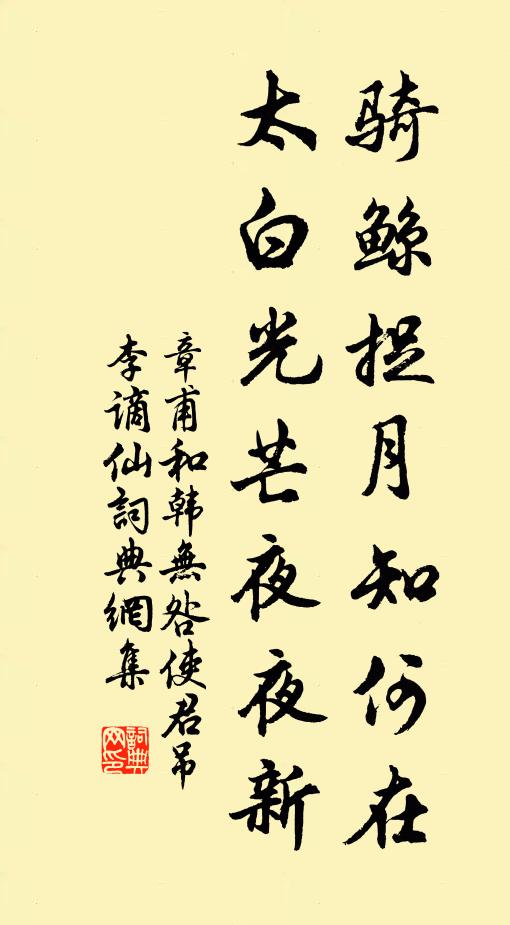 骑鲸捉月知何在
太白光芒夜夜新
章甫和韩無咎使君吊
李谪仙詞典網集
詞典
网印